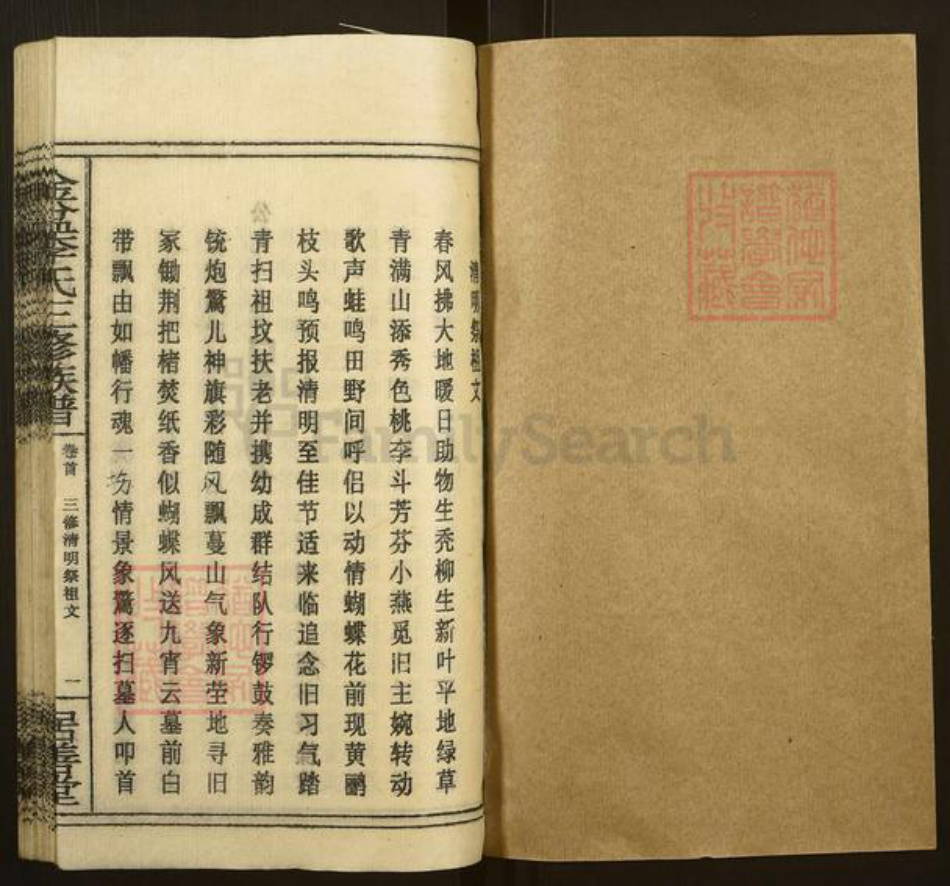 清明祭祖文
春风拂大地暖日助物生秃柳生新叶平地绿草
青满山添秀色桃李斗芳芬小燕觅旧主婉转动
歌声蛙鸣田野间呼侣以动情蝴蝶花前现黄鹂
枝头鸣预报清明至佳节适来临追念旧习气踏
青扫祖坟扶老并携幼成群结队行锣鼓奏雅韵
铳炮驚儿神旗彩随风飘蔓山气象新茔地寻旧
冢锄荆把楮焚纸香似蝴蝶风送九宵云墓前白
带飘由如幡行魂一场情景象驚逐扫墓人叩首
李氏三修族谱
卷首 三修清明祭祖文 一
居善堂
FamilySearch